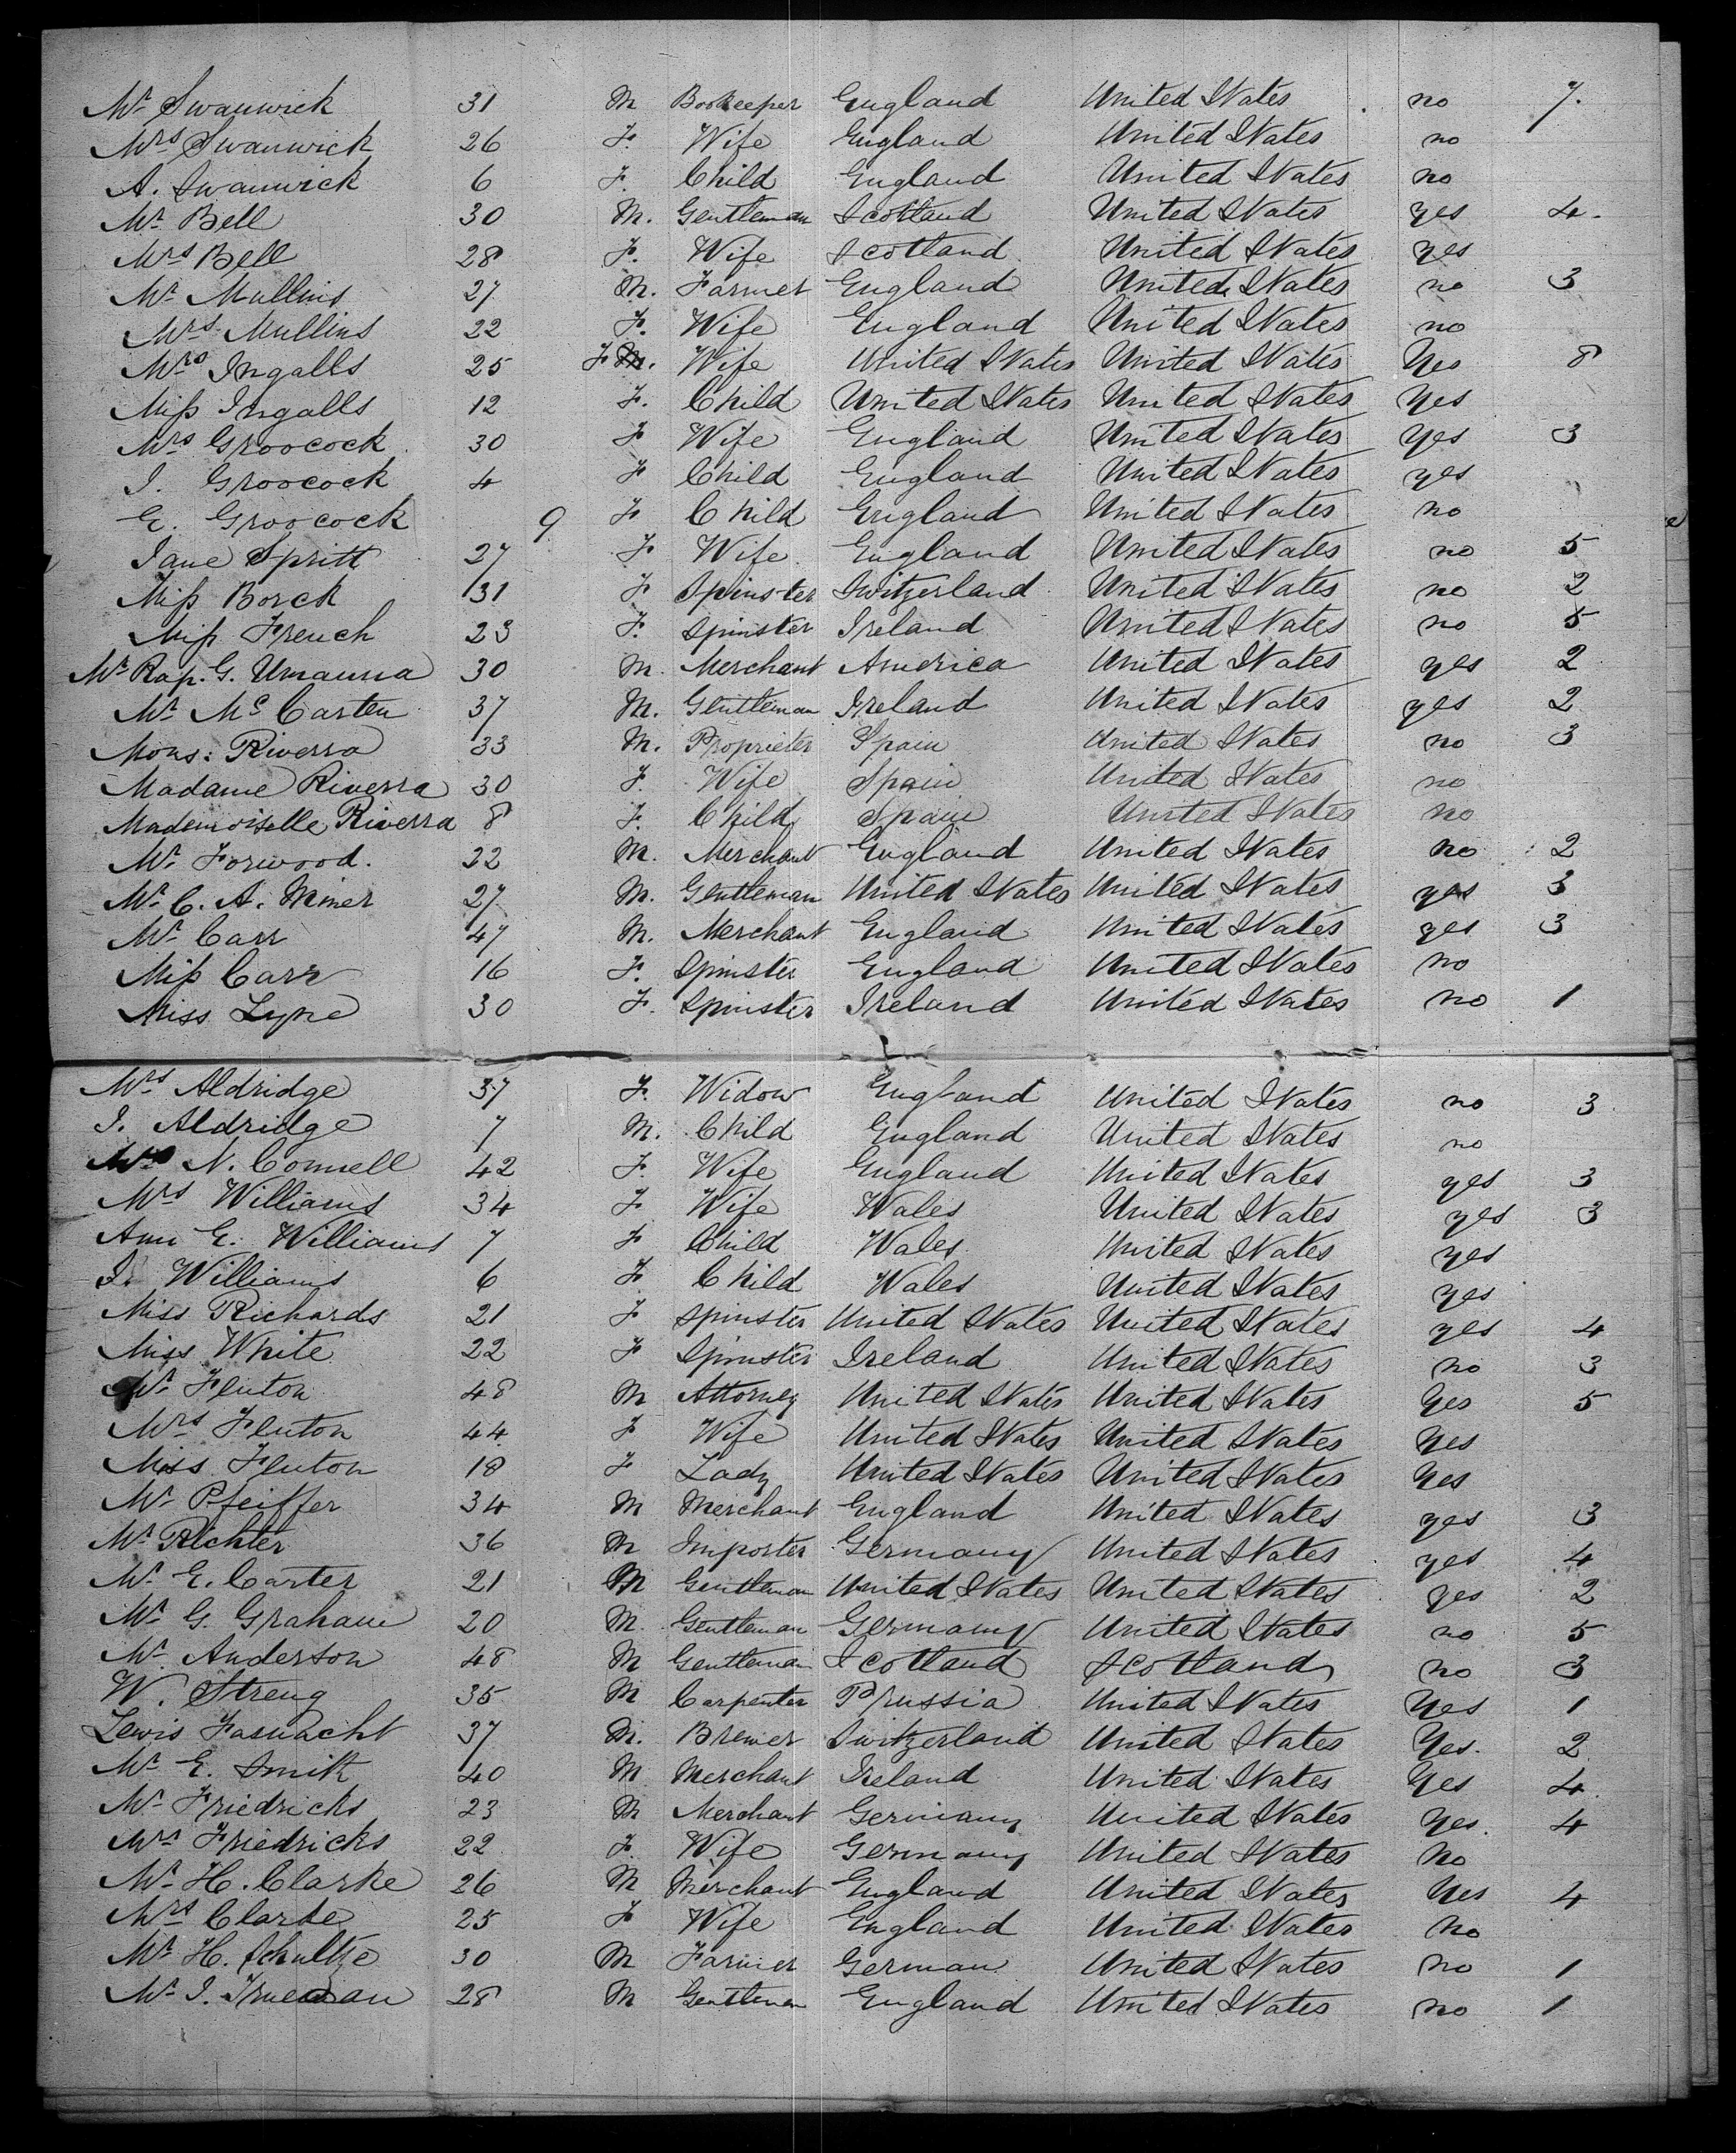 Mr Swanwick 31 M Bookeeper England United States no 7.
Mrs Swanwick 26 F. Wife England United States no
A. Swanwick 6 F. Child England United States no
Mr Bell 30 M. Gentleman Scotland United States yes 4.
Mrs Bell 28 F. Wife Scotland United States yes
Mr Mullins 27 M. Farmer England United States no 3
Mrs Mullins 22 F. Wife England United States no
Mrs Ingalls 25 F M. Wife United States United States Yes 8
Miss Ingalls 12 F. Child United States United States Yes
Mrs Groocock 30 F Wife England United States Yes 3
I. Groocock 4 F Child England United States yes
E. Groocock 9 F Child England United States no
Jane Spritt 27 F Wife England United States no 5
Miss Borck 31 F Spinster Switzerland United States no 2
Miss French 23 F. Spinster Ireland United States no 5
Mr Rap. G. Umauna 30 M. Merchant America United States yes 2
Mr McCarten 37 M. Gentleman Ireland United States yes 2
Mons: Riverra 33 M. Proprieter Spain United States no 3
Madame Riverra 30 F. Wife Spain United States no
Mademoiselle Riverra 8 F. Child Spain United States no
Mr Forwood. 22 M. Merchant England United States no 2
Mr C. A. Miner 27 M. Gentleman United States United States yes 3
Mr Carr 47 M. Merchant England United States yes 3
Miss Carr 16 F. Spinster England United States no
Miss Lyne 30 F. Spinster Ireland United States no 1
Mrs Aldridge 37 F. Widow England United States no 3
I. Aldridge 7 M. Child England United States no
N. Connell 42 F. Wife England United States yes 3
Mrs Williams 34 F Wife Wales United States yes 3
Ann E. Williams 7 F Child Wales United States yes
I. Williams 6 F. Child Wales United States yes
Miss Richards 21 F Spinster United States United States yes 4
Miss White 22 F Spinster Ireland United States no 3
Mr Fenton 48 M Attorney United States United States Yes 5
Mrs Fenton 44 F Wife United States United States Yes
Miss Fenton 18 F Lady United States United States Yes
Mr Pfeiffer 34 M Merchant England United States yes 3
Mr Richter 36 M Importer Germany United States yes 4
Mr E. Carter 21 M Gentleman United States United States yes 2
Mr G. Graham 20 M. Gentleman Germany United States no 5
Mr Anderson 48 M Gentleman Scotland Scotland no 3
W. Streng 35 M Carpenter Prussia United States Yes 1
Lewis Fasnacht 37 M. Brewer Switzerland United States Yes. 2
Mr E. Smith 40 M Merchant Ireland United States Yes 4
Mr Friedricks 23 M Merchant Germany United States Yes. 4
Mrs Friedricks 22 F. Wife Germany United States No
Mr H. Clarke 26 M Merchant England United States Yes 4
Mrs Clarke 25 F Wife England United States No
Mr H. Schultze 30 M Farmer German United States No 1
Mr I. Trueman 28 M Gentleman England United States no 1